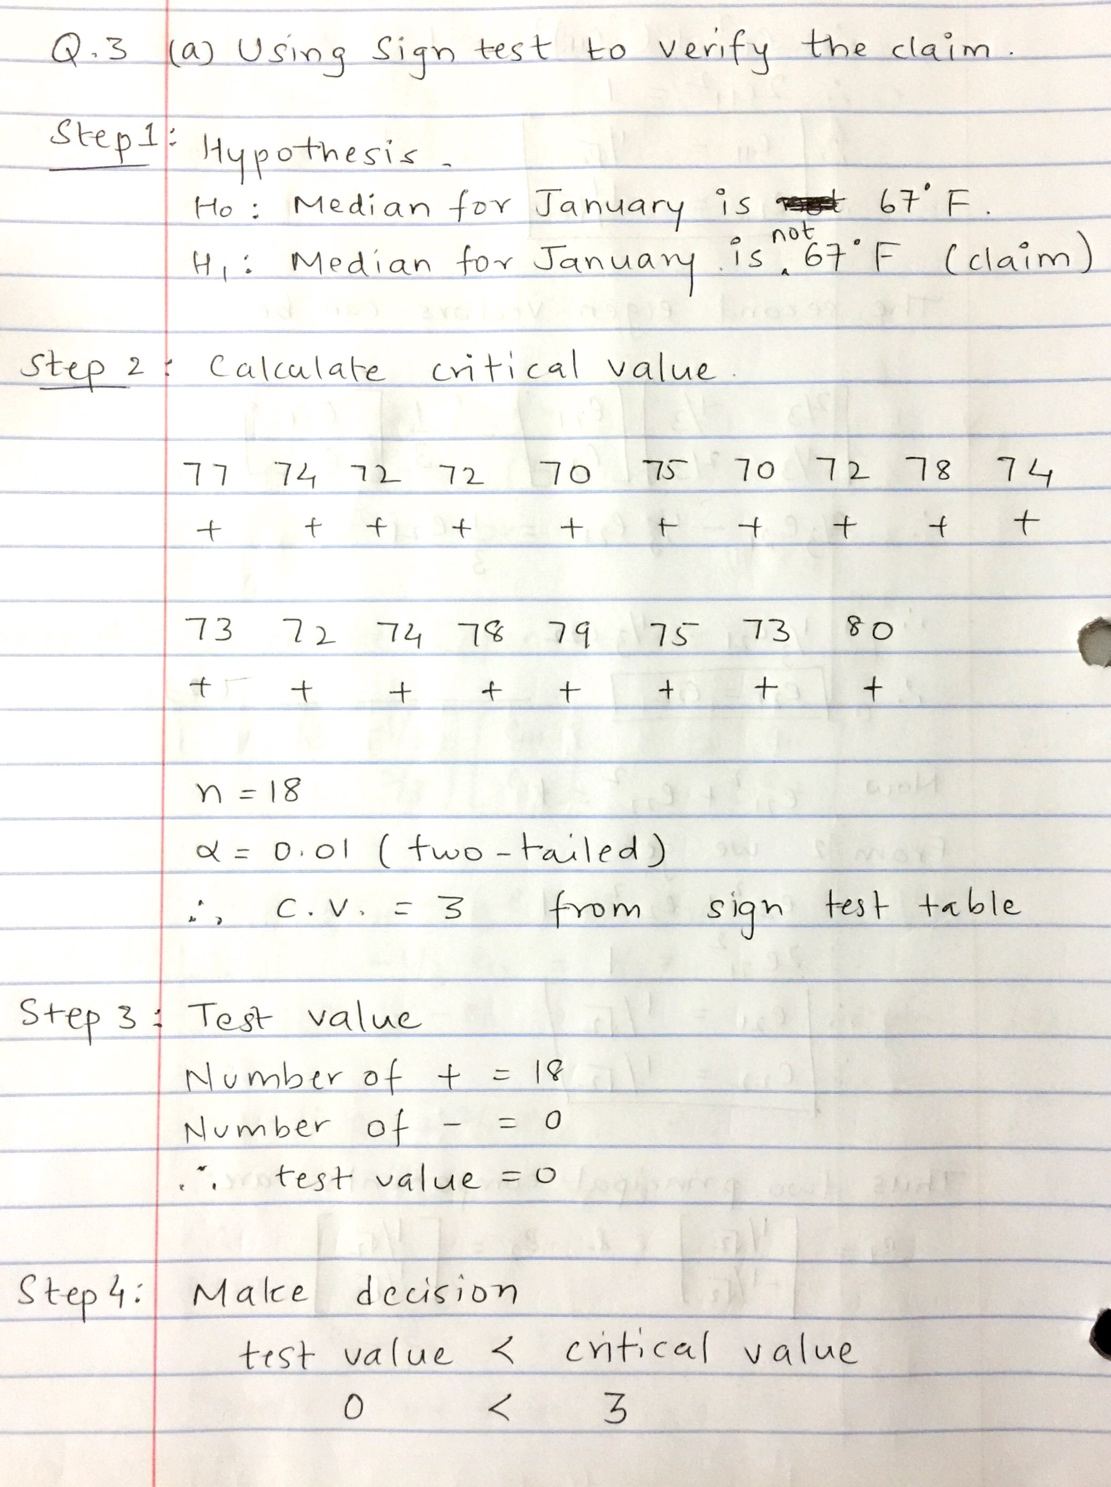 Q.3 (a) Using Sign test to verify the claim.
Step 1: Hypothesis.
H0 : Median for January is 67°F.
H1 : Median for January is not 67°F (claim)
Step 2 : Calculate critical value.
77 74 72 72 70 75 70 72 78 74
+ + + + + + + + + +
73 72 74 78 79 75 73 80
+ + + + + + + +
n = 18
α = 0.01 (two-tailed)
∴, C.V. = 3 from sign test table
Step 3 : Test value
Number of + = 18
Number of - = 0
∴ test value = 0
Step 4: Make decision
test value < critical value
0 < 3